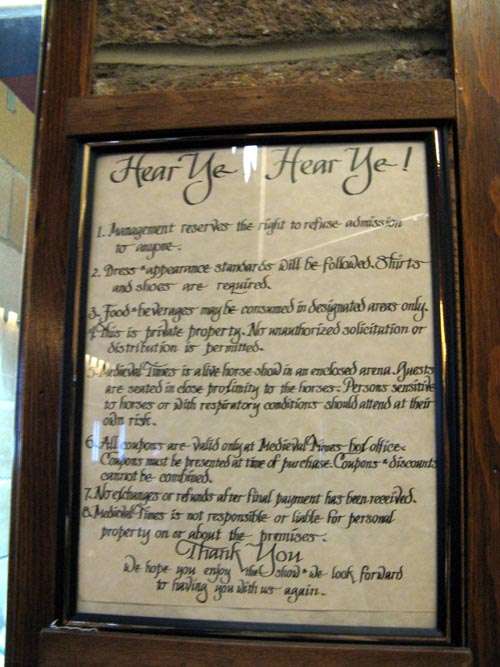 Hear Ye Hear Ye!
1. Management reserves the right to refuse admission
to anyone.
2. Dress & appearance standards will be followed. Shirts
and shoes are required.
3. Food & beverages may be consumed in designated areas only.
4. This is private property. No unauthorized solicitation or
distribution is permitted.
5. Medieval Times is a live horse show in an enclosed arena. Guests
are seated in close proximity to the horses. Persons sensitive
to horses or with respiratory conditions should attend at their
own risk.
6. All coupons are valid only at Medieval Times box office.
Coupons must be presented at time of purchase. Coupons & discounts
cannot be combined.
7. No exchanges or refunds after final payment has been received.
8. Medieval Times is not responsible or liable for personal
property on or about the premises.
Thank You
We hope you enjoy the show & we look forward
to having you with us again.